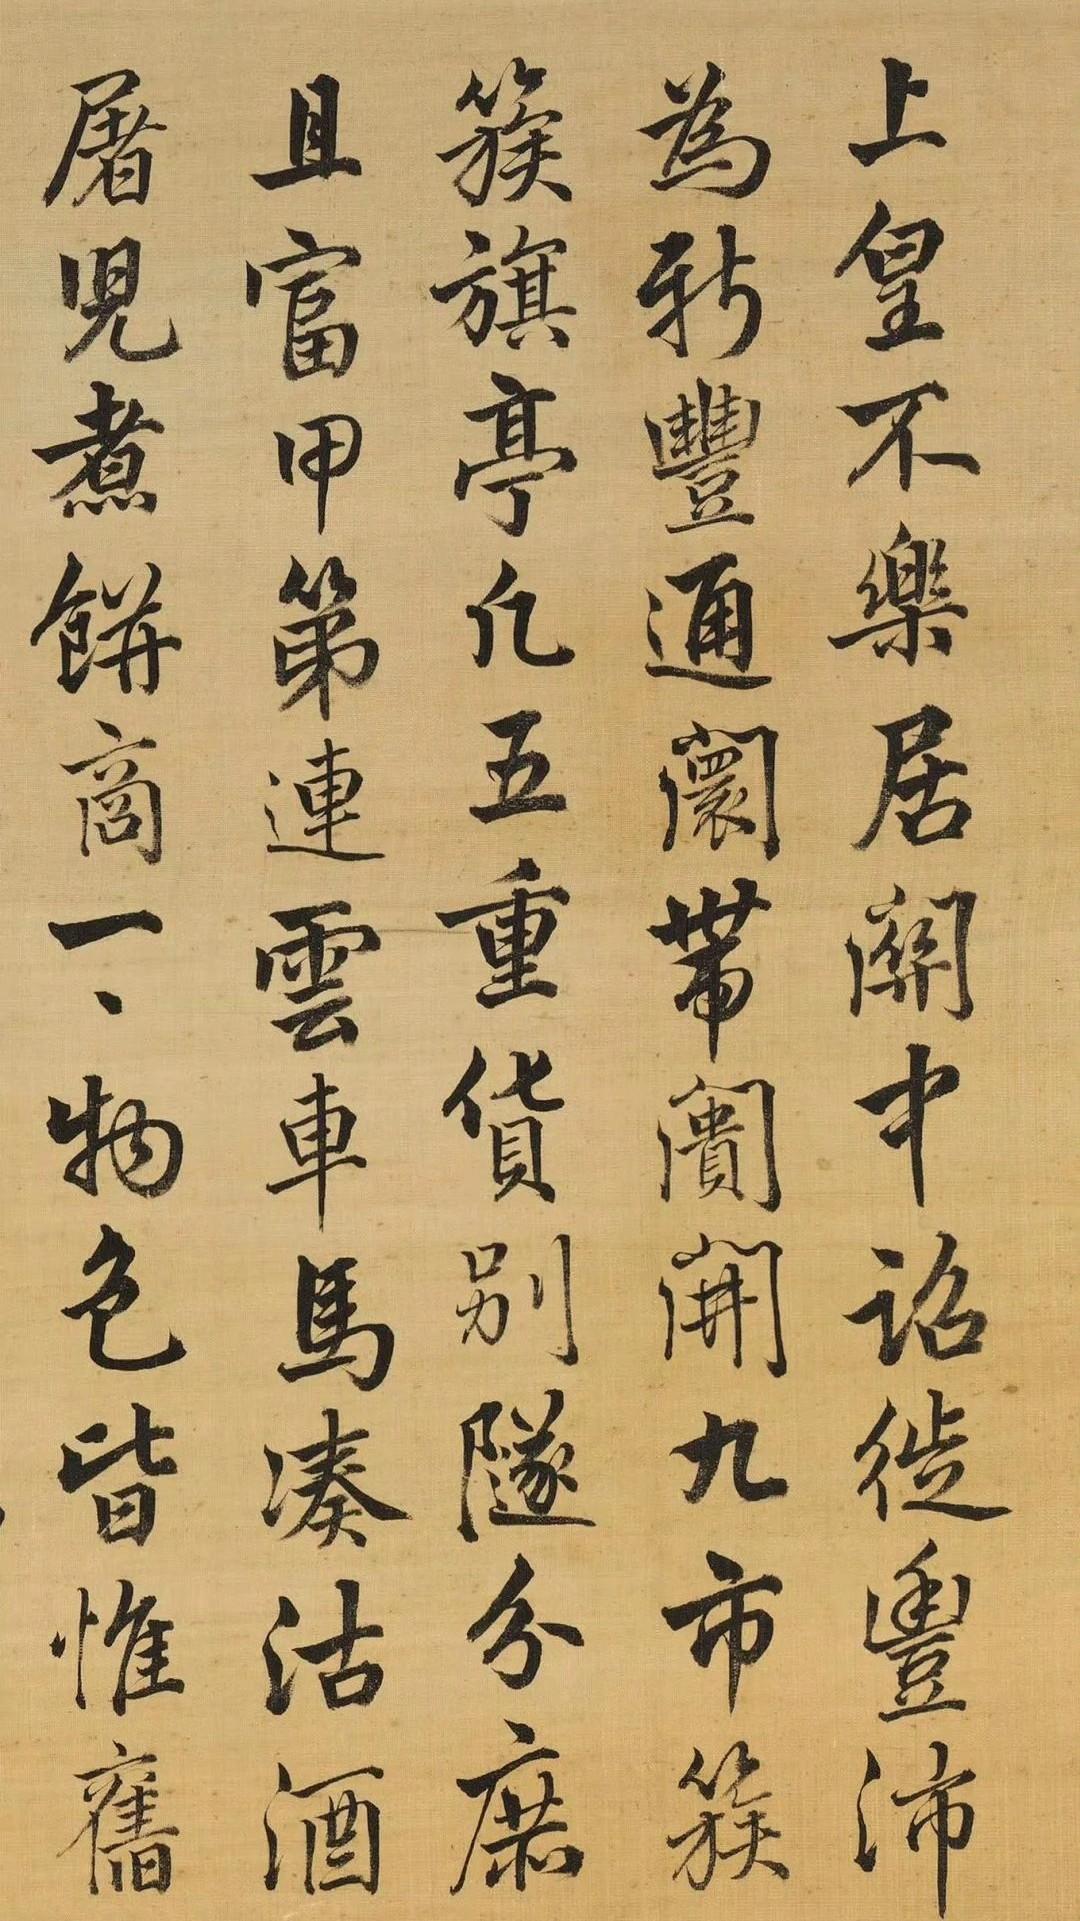 上皇不樂居關中詔徙豐沛
為新豐通闤帶闠開九市簇
簇旗亭凡五重貨別隧分庶
且富甲第連雲車馬湊沽酒
屠児煮餅商一、物色皆惟舊